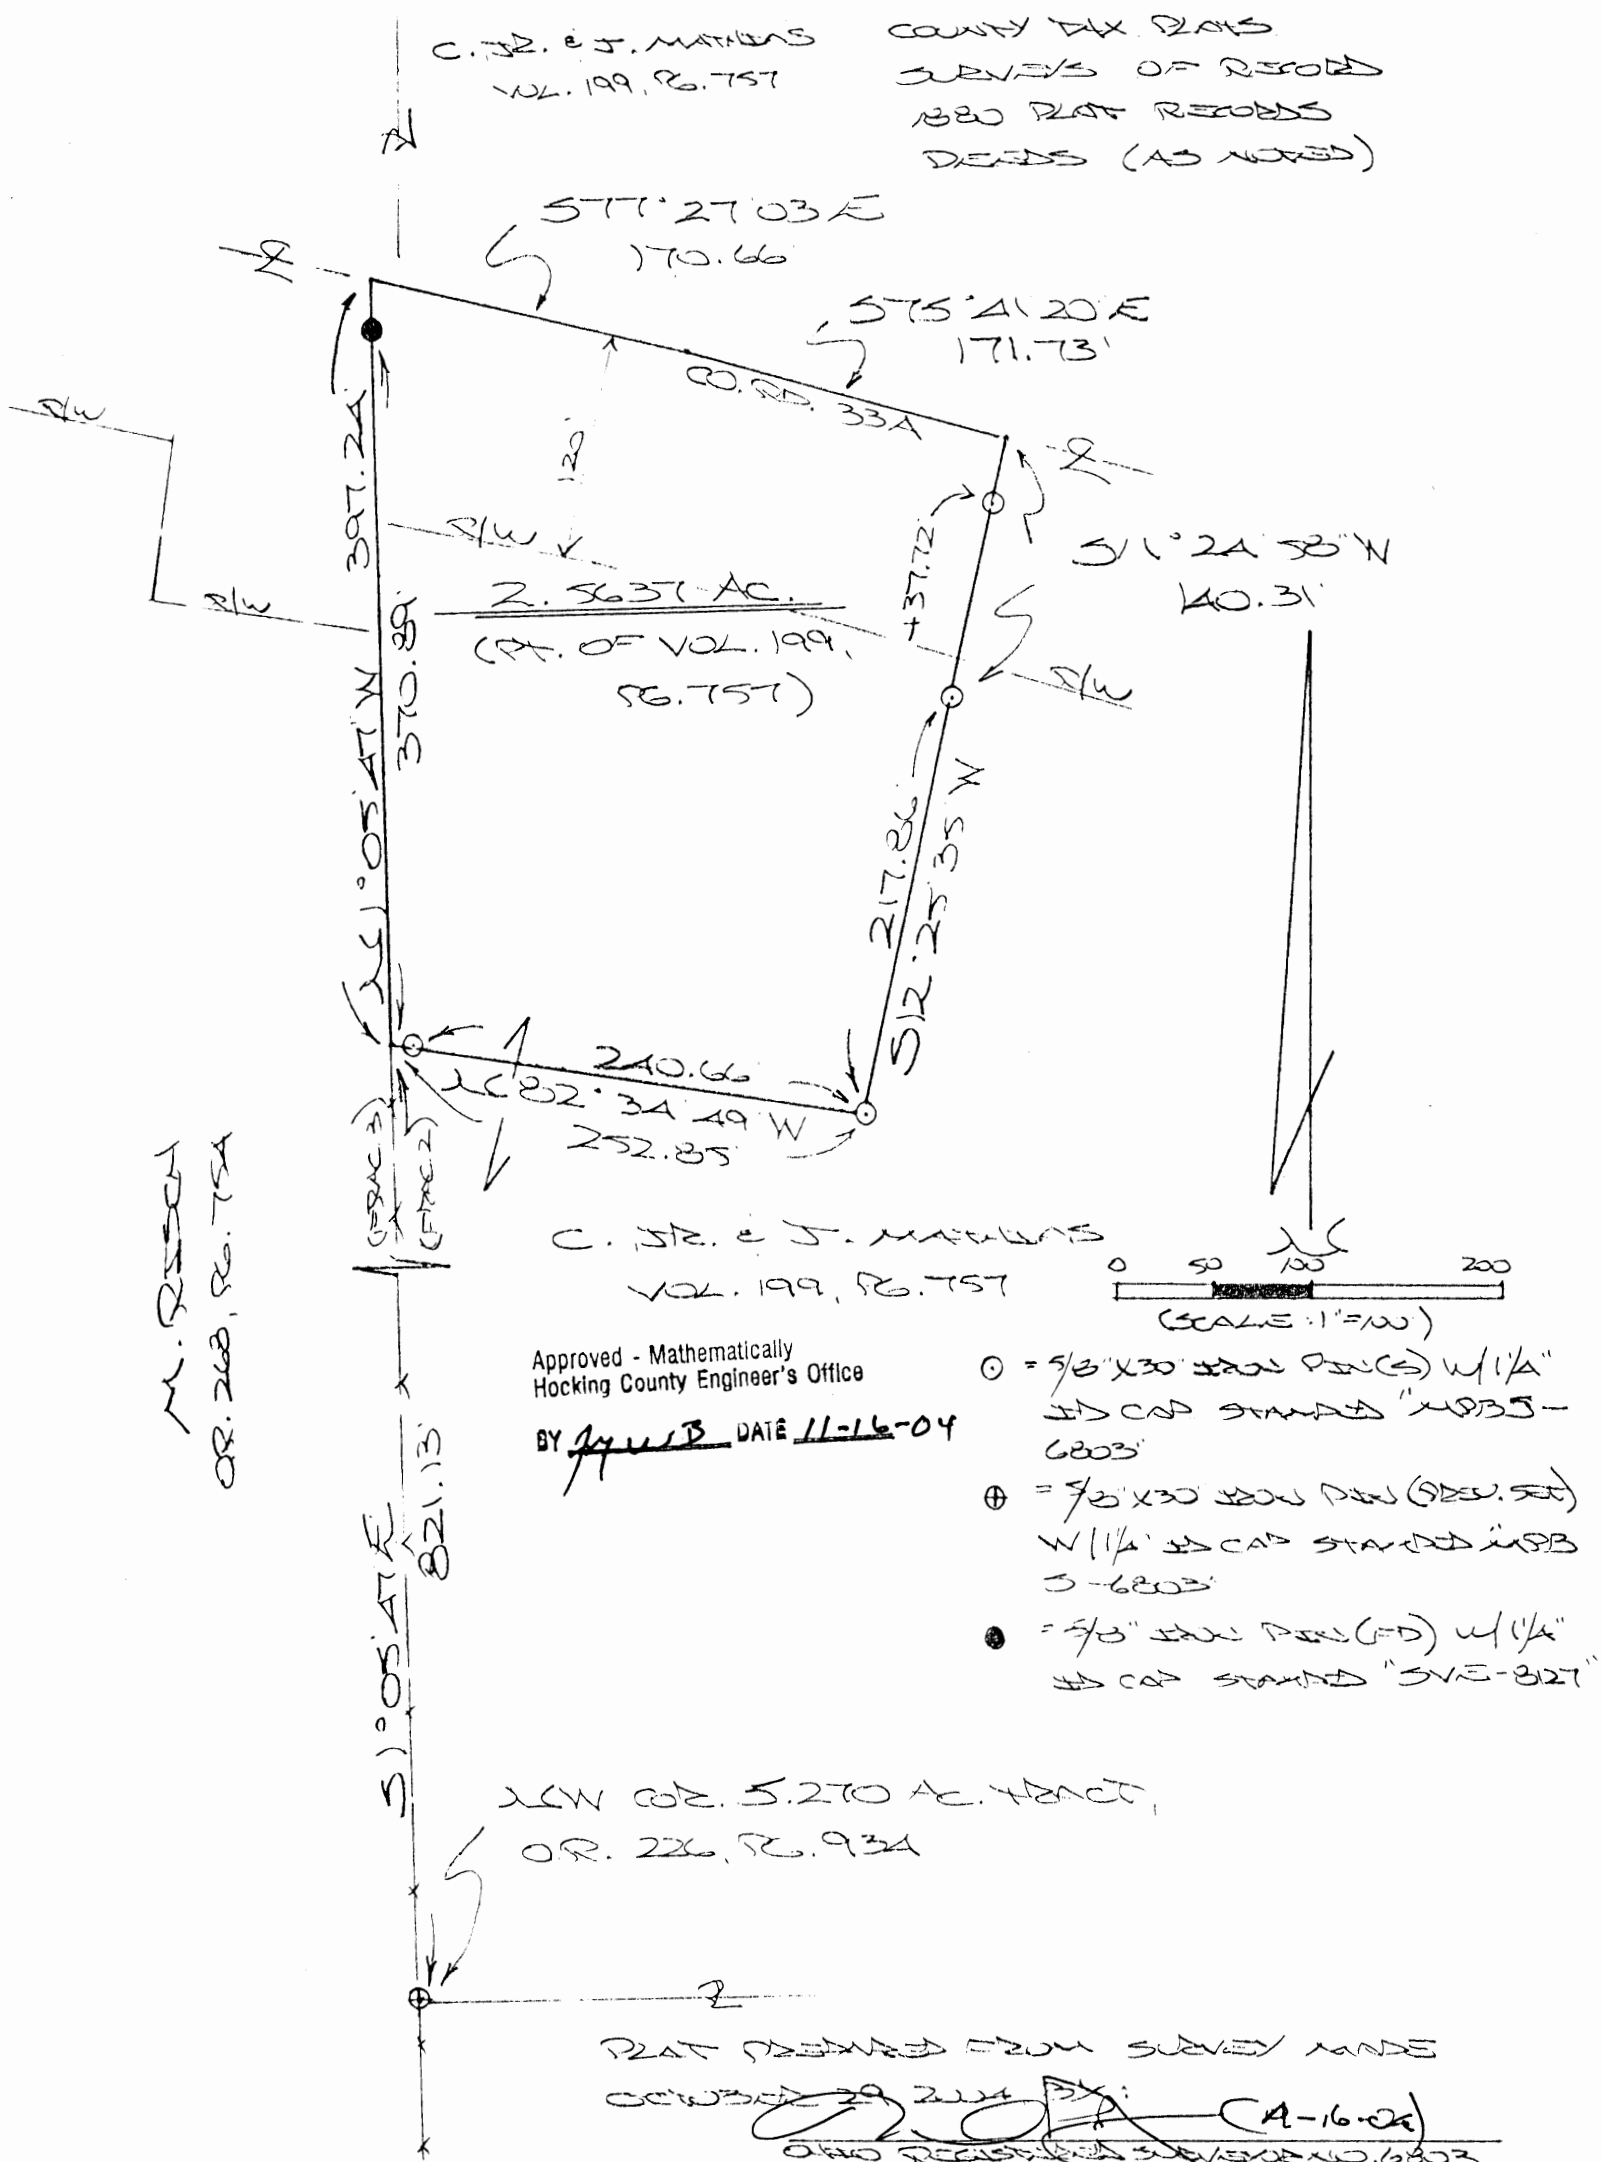 C. JR. & J. MATHIAS
VOL. 199, PG. 757
COUNTY TAX PLATS
SURVEYS OF RECORD
1880 PLAT RECORDS
DEEDS (AS NOTED)
S77°27'03"E
170.66'
S75°41'20"E
171.73'
CO. RD. 33A
R/W
120'
R/W
R/W
R/W
397.24'
370.89'
N1°05'47"W
2.5637 AC.
(PT. OF VOL. 199,
PG. 757)
37.72'
S11°24'58"W
140.31'
217.86'
S12°25'35"W
240.66'
N82°34'49"W
252.85'
(FRAC. 3)
(FRAC. 2)
M.
OR. 268, PG. 754
C. JR. & J. MATHIAS
VOL. 199, PG. 757
N
0 50 100 200
(SCALE: 1"=100')
Approved - Mathematically
Hocking County Engineer's Office
BY DATE 11-16-04
⊙ = 5/8"X30" IRON PIN(S) W/ 1 1/4"
ID CAP STAMPED "MPB S-
6803"
⊕ = 5/8"X30" IRON PIN (PREV. SET)
W/ 1 1/4" ID CAP STAMPED "MPB
S-6803"
● = 5/8" IRON PIN (FD) W/ 1 1/4"
ID CAP STAMPED "SVE-8127"
S1°05'47"E
821.13'
NW COR. 5.270 AC. TRACT,
OR. 226, PG. 934
PLAT PREPARED FROM SURVEY MADE
OCTOBER 29, 2004 BY:
OHIO REGISTERED SURVEYOR NO. 6803